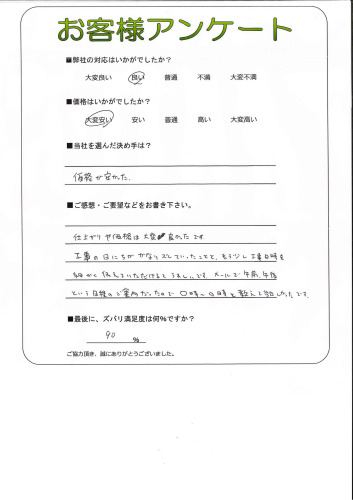 お客様アンケート
■弊社の対応はいかがでしたか？
大変良い 良い 普通 不満 大変不満
■価格はいかがでしたか？
大変安い 安い 普通 高い 大変高い
■当社を選んだ決め手は？
価格が安かった.
■ご感想・ご要望などをお書き下さい。
仕上がりや価格は大変良かったです
工事の日にちがかなりズレていたことと、もう少し工事日時を
細かく伝えていただけるとうれしいです。メールで午前、午後
という日程のご案内だったので〇時〜〇時と教えて欲しかったです
■最後に、ズバリ満足度は何%ですか？
90 %
ご協力頂き、誠にありがとうございました。